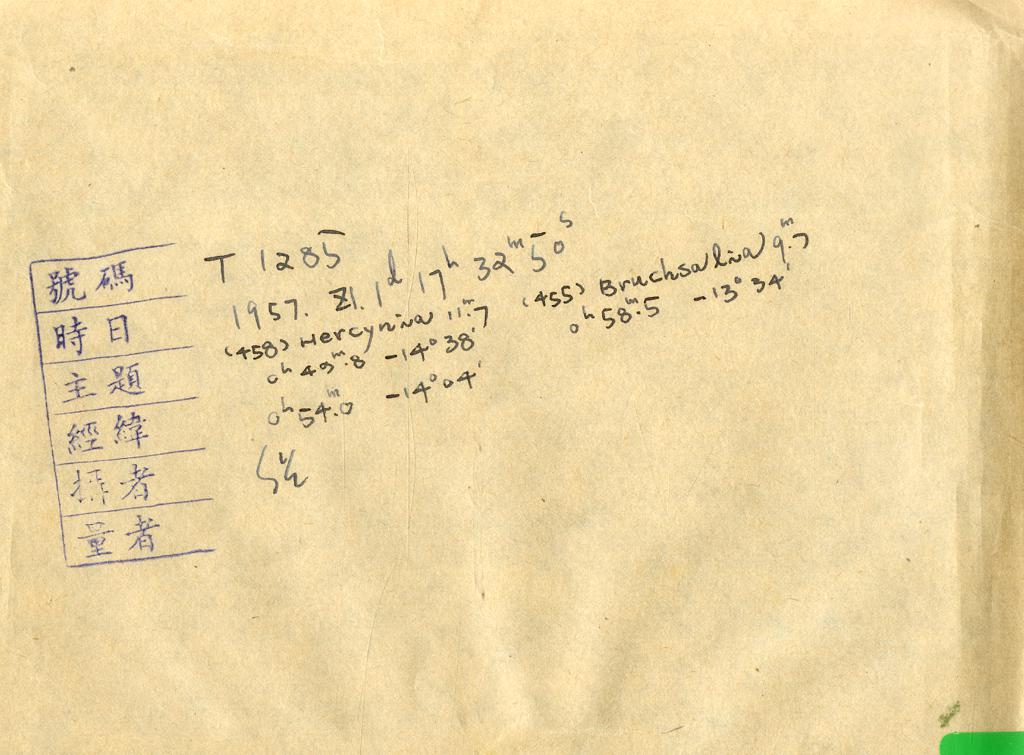 號碼 T 1285
時日 1957. XI. 1ᵈ 17ʰ 32ᵐ 50ˢ
主題 (458) Hercynia 11ᵐ.7 (455) Bruchsalia 9ᵐ.7
0ʰ 49ᵐ.8 -14° 38′ 0ʰ 58ᵐ.5 -13° 34′
經緯 0ʰ 54ᵐ.0 -14° 04′
者
量者